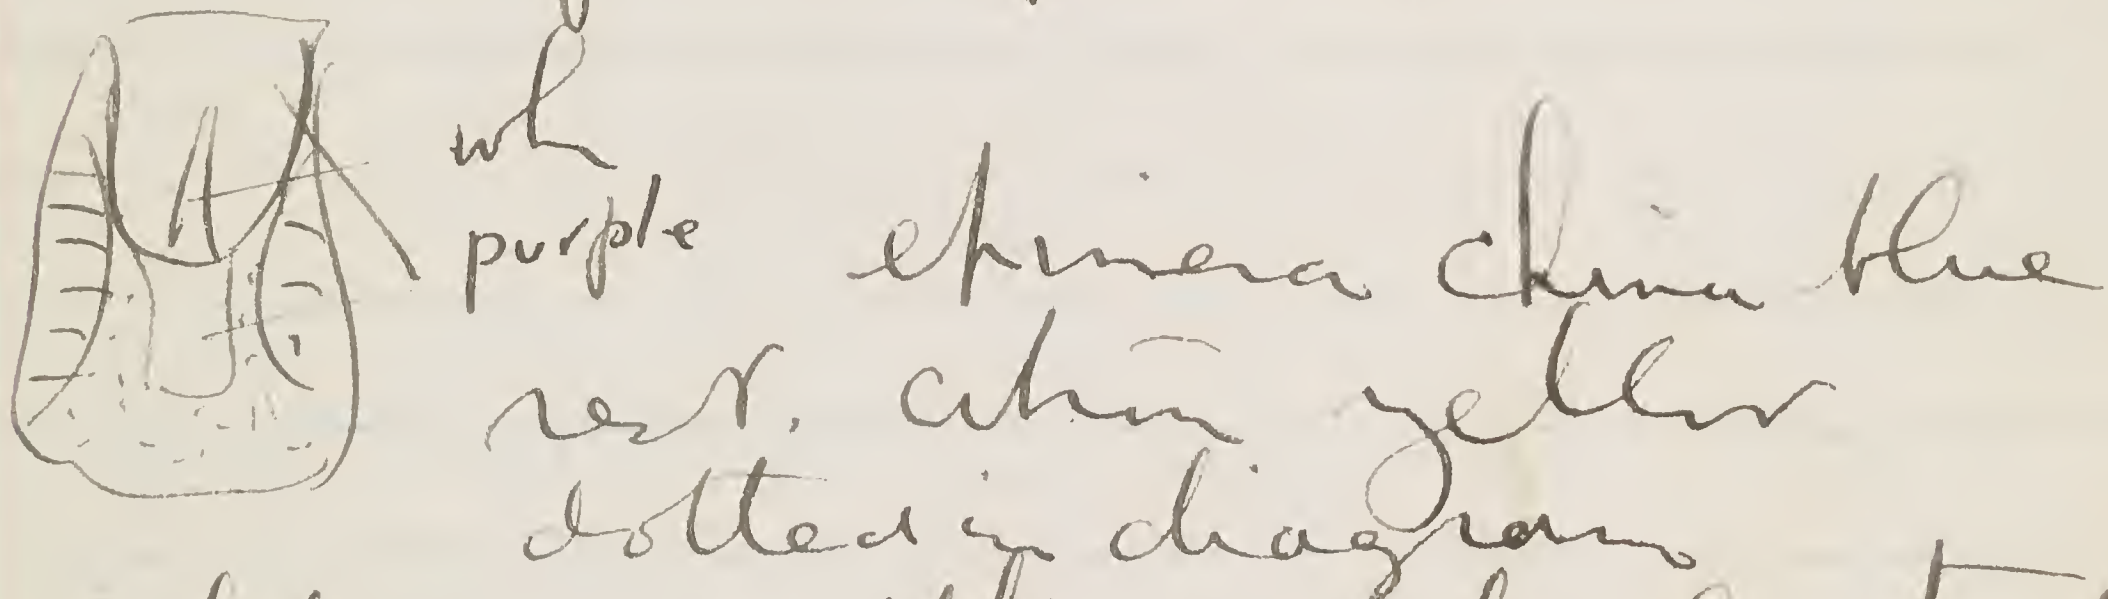 wh
purple epimera china blue
rest. citron yellow
dotted in diagram